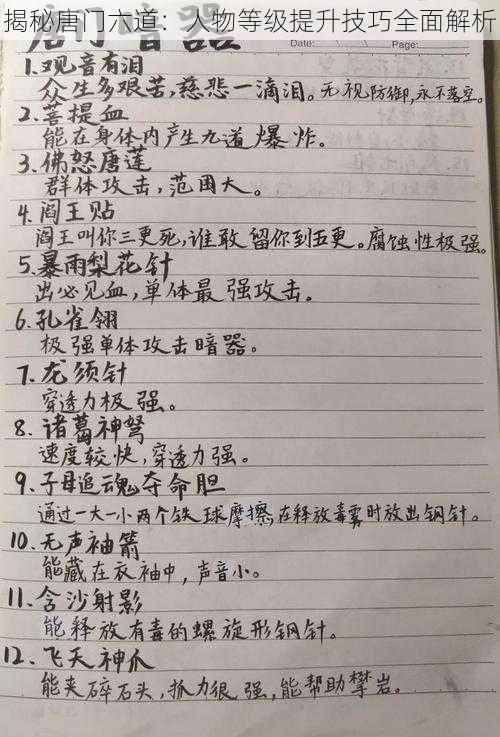 揭秘唐门六道：人物等级提升技巧全面解析
唐门暗器
1.观音有泪
众生多艰苦,慈悲一滴泪。无视防御,永不落空。
2.菩提血
能在身体内产生九道爆炸。
3.佛怒唐莲
群体攻击,范围大。
4.阎王贴
阎王叫你三更死,谁敢留你到五更。腐蚀性极强。
5.暴雨梨花针
出必见血,单体最强攻击。
6.孔雀翎
极强单体攻击暗器。
7.龙须针
穿透力极强。
8.诸葛神弩
速度较快,穿透力强。
9.子母追魂夺命胆
通过一大一小两个铁球摩擦在释放毒雾时放出钢针。
10.无声袖箭
能藏在衣袖中,声音小。
11.含沙射影
能释放有毒的螺旋形钢针。
12.飞天神爪
能夹碎石头,抓力很强,能帮助攀岩。